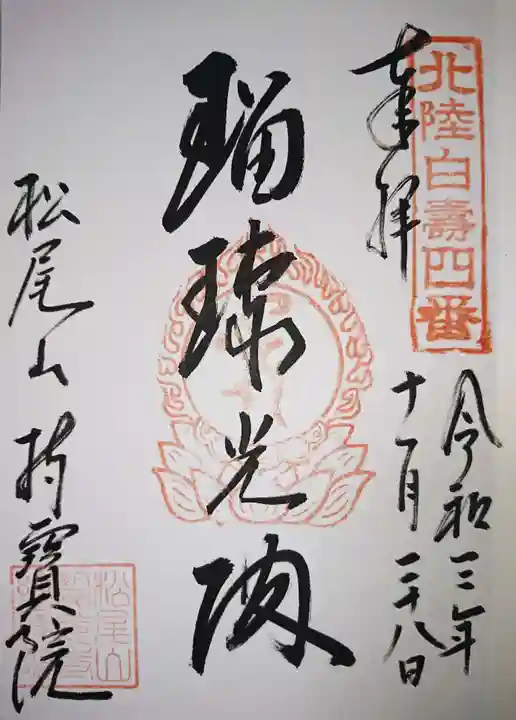 北陸白壽四番
奉拝
令和三年
十一月二十八日
瑠璃光殿
松尾山持寳院
松尾山